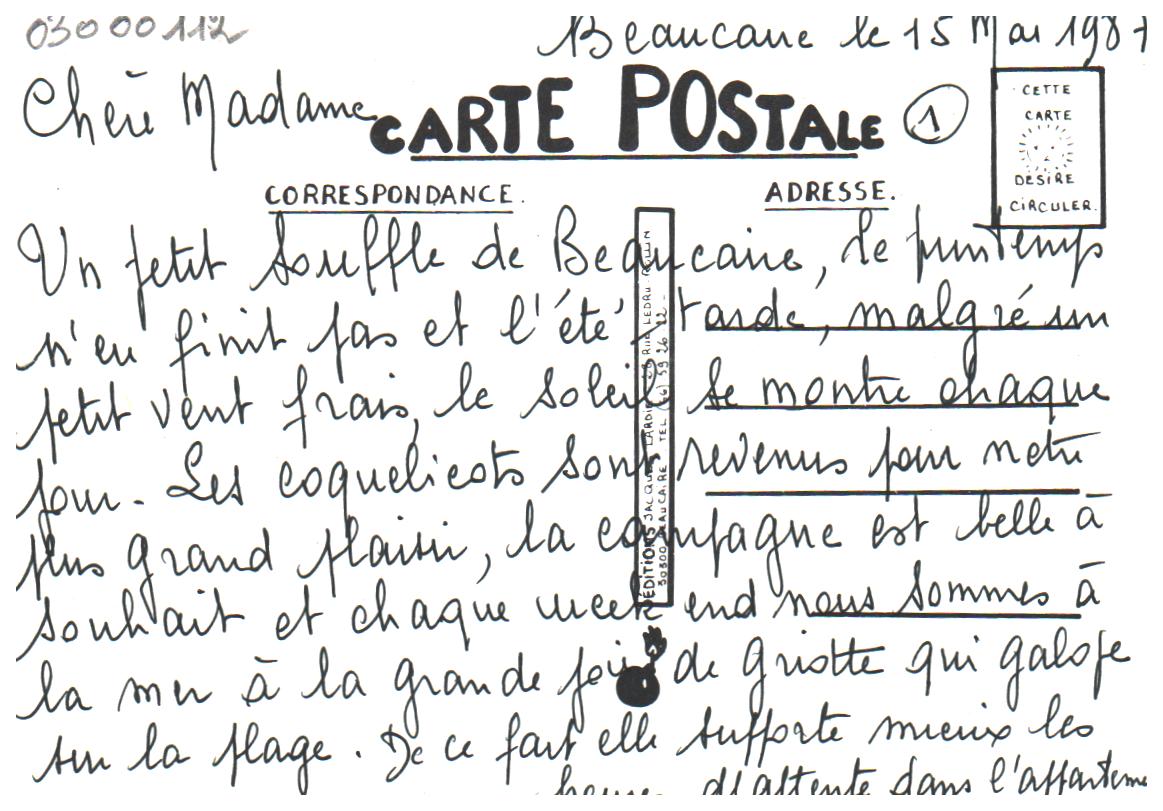 03000112
Beaucaire le 15 Mai 1987
Chère Madame
CARTE POSTALE
1
CETTE
CARTE
DÉSIRE
CIRCULER.
CORRESPONDANCE.
ADRESSE.
Un petit souffle de Beaucaire, le printemps
n'en finit pas et l'été tarde, malgré un
petit vent frais, le soleil se montre chaque
jour. Les coquelicots sont revenus pour notre
plus grand plaisir, la campagne est belle à
souhait et chaque week end nous sommes à
la mer à la grande joie de Griotte qui galope
sur la plage. De ce fait elle supporte mieux les
heures d'attente dans l'apparteme
EDITIONS JACQUES LARDIE RUE LEDRU ROLLIN
30300 BEAUCAIRE TEL (66) 59 26 12